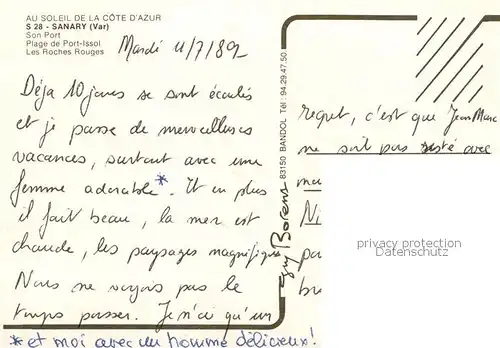 AU SOLEIL DE LA CÔTE D'AZUR
S 28 - SANARY (Var)
Son Port
Plage de Port-Issol
Les Roches Rouges
Mardi 4/7/89
Déja 10 jours se sont écoulés
et je passe de merveilleuses
vacances, surtout avec une
femme adorable*. Et en plus
il fait beau, la mer est
chaude, les paysages magnifiques
Nous ne voyons pas le
temps passer. Je n'ai qu'un
* et moi avec un homme délicieux!
83150 BANDOL Tél : 94.29.47.50
regret, c'est que Jean Marc
ne soit pas resté avec
privacy protection
Datenschutz